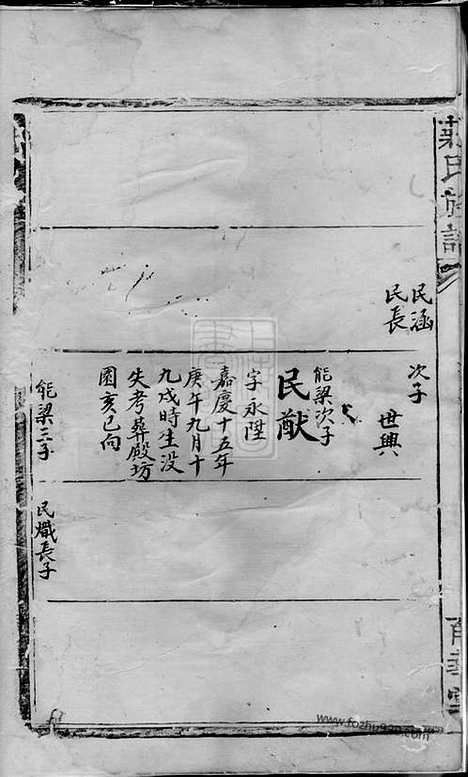 氏族譜
民涵
民長
次子
世興
能梁次子
民猷
字永陞
嘉慶十五年
庚午九月十
九戌時生没
失考葬殿坊
園亥巳向
能梁三子
民熾長子
www.fozhu920.com